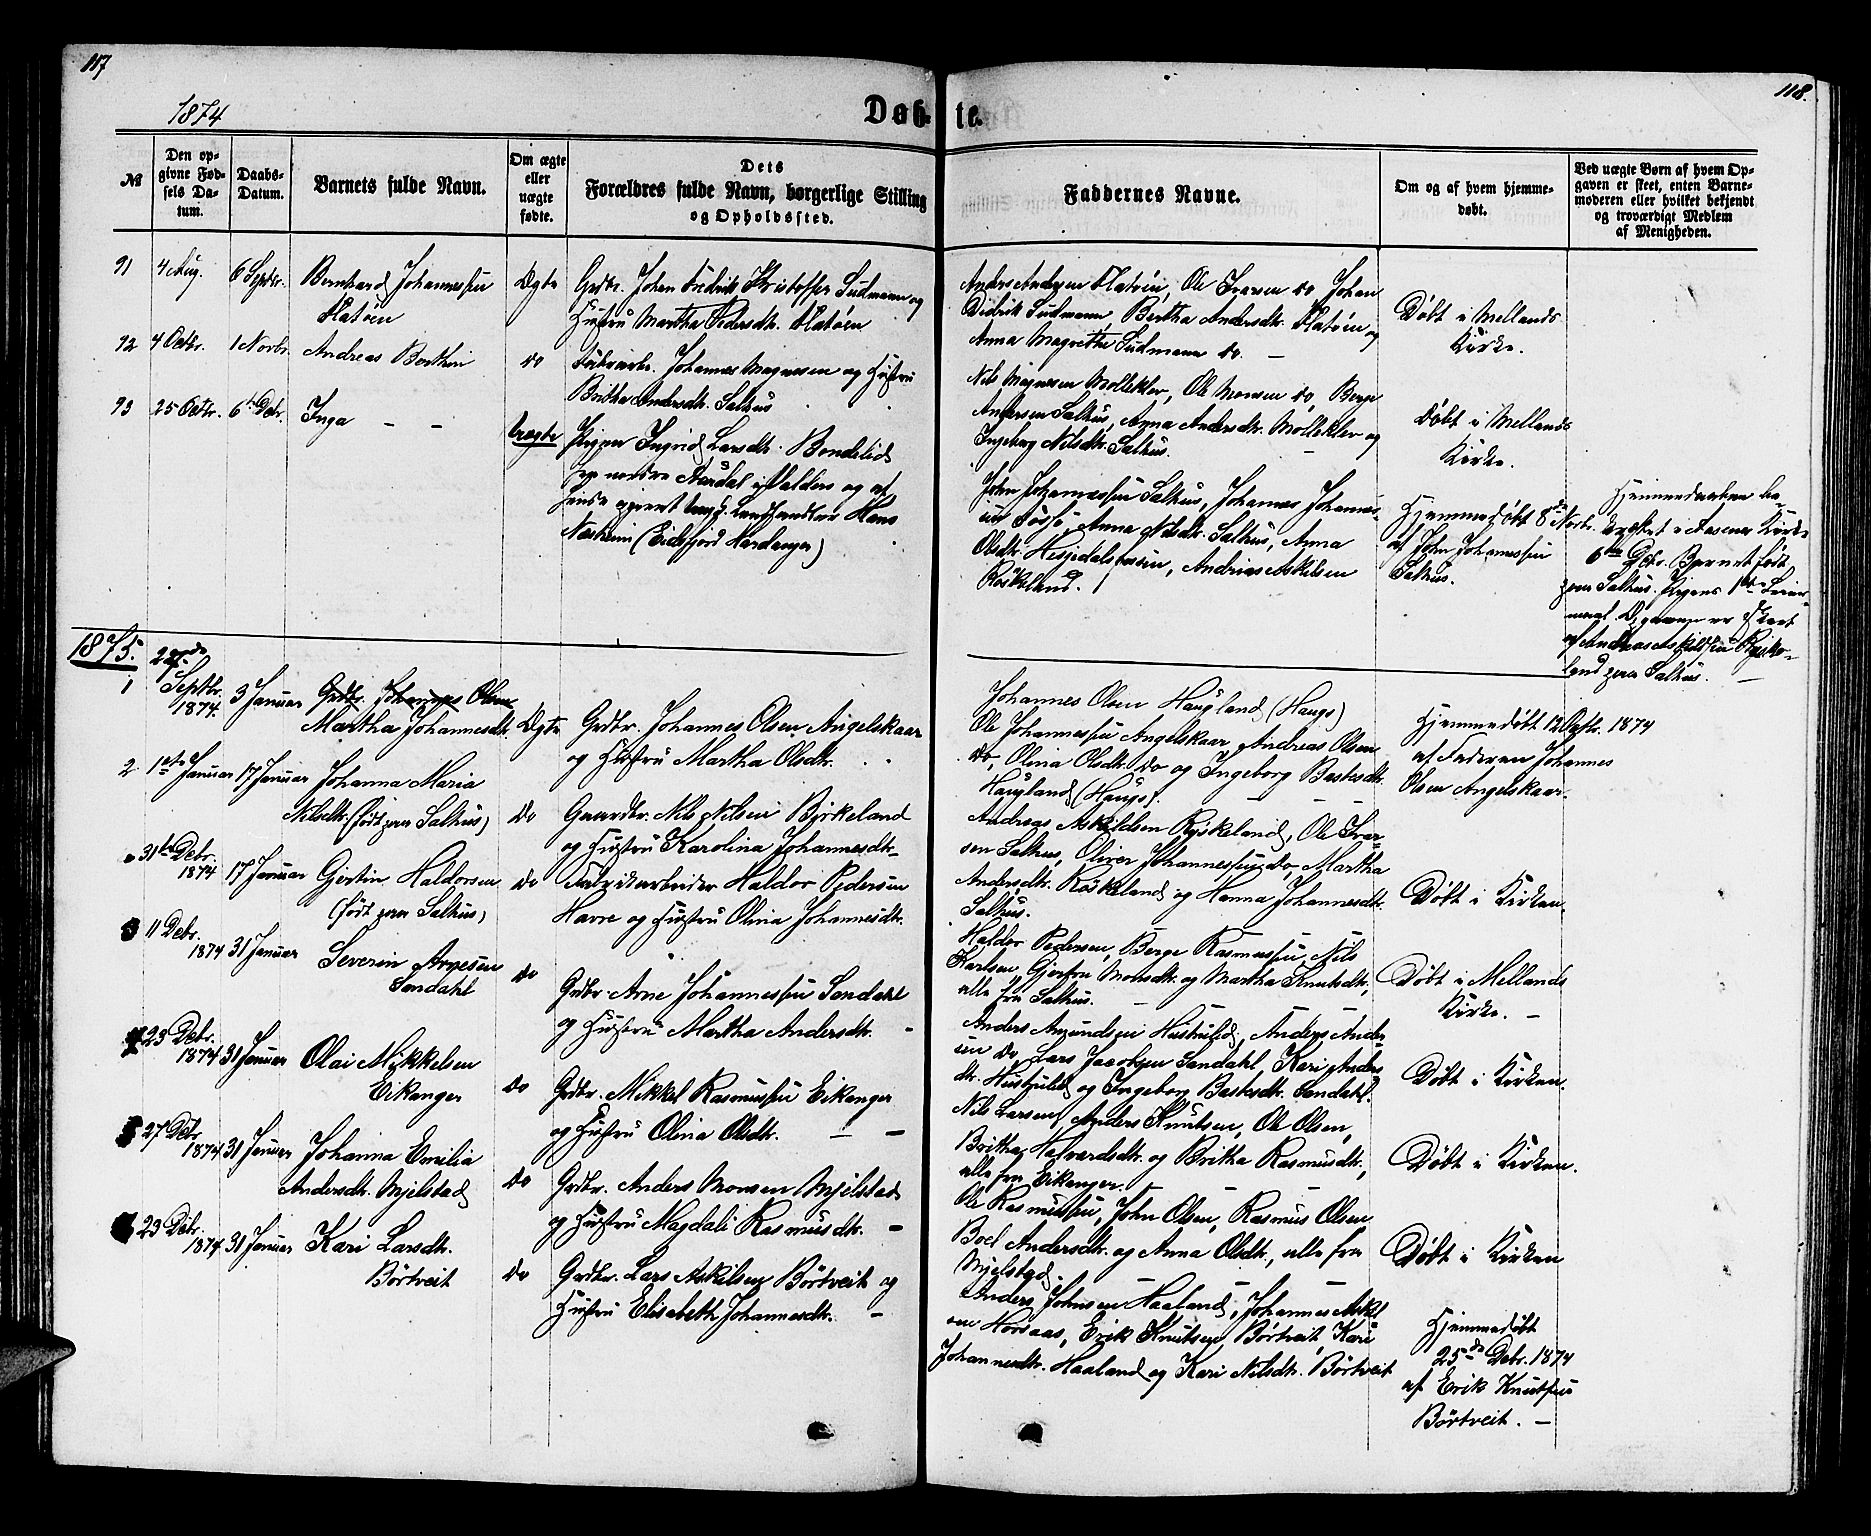 117
118.
1874
Døbte.
№
Den opgivne Fødsels Datum.
Daabs-Datum.
Barnets fulde Navn.
Om ægte eller uægte fødte.
Dets Forældres fulde Navn, borgerlige Stilling og Opholdssted.
Faddernes Navne.
Om og af hvem hjemmedøbt.
Ved uægte Børn af hvem Opgaven er skeet, enten Barnemoderen eller hvilket bekjendt og troværdigt Medlem af Menigheden.
91 4 Aug. 6 Septbr. Bernhard Johannessen
Flatøen
Ægte
Grdbr. Johan Fredrik Kristoffer Sudmann og
Hustru Martha Pedersdtr. Flatøen
Anders Andersen Flatøen, Ole Iversen do Johan
Didrik Sudmann, Bertha Andersdtr. Flatøen og
Anna Magrethe Sudmann do. —
Døbt i Mellands
Kirke.
92 4 Octbr. 1 Novbr. Andreas Berthin
do
Fabrikarb. Johannes Magnesen og Hustru
Britha Andersdtr. Salhus
Nils Magnesen Mølleklev, Ole Monsen do Berge
Andersen Salhus, Anna Andersdtr. Mølleklev og
Ingeborg Nilsdtr. Salhus.
Døbt i Mellands
Kirke.
93 25 Octbr. 6te Debr. Inga — —
Uægte
Pigen Ingrid Larsdtr. Bondelid
fra nordre Aurdal i Valders og af
hende opgivet Ungk. Landhandler Hans
Næsheim (Eidsfjord Hardanger)
John Johannessen Salhus, Johannes Johannes-
sen Fosse, Anna Nilsdtr. Salhus, Anna
Olsdtr. Hesjedalsfossen, Andreas Askelsen
Røskeland.
Hjemmedøbt 8de Novbr.
af John Johannessen
Salhus.
Hjemmedaaben be-
kræftet i Aasene Kirke
6te Debr. Barnet født
paa Salhus. Pigens 1ste Leier-
maal. Opgaven er skeet
af Andreas Askildsen Røske-
land paa Salhus. —
1875.
1 22de
Septbr.
1874. 3 Januar Grdbr. Johannes Olsen
Martha Johannesdtr.
Ægte
Grdbr. Johannes Olsen Angelskaar
og Hustru Martha Olsdtr.
Johannes Olsen Haugland (Haugs)
Ole Johannessen Angelskaar, Andreas Olsen
do, Olina Olsdtr. do og Ingeborg Bastesdtr.
Haugland (Haugs).
Hjemmedøbt 12 Octbr. 1874
af Faderen Johannes
Olsen Angelskaar.
2 1ste Januar 17 Januar Johanna Maria
Nilsdtr. (født paa Salhus)
do
Gaardbr. Nils Nilsen Birkeland
og Hustru Karolina Johannesdtr.
Andreas Askildsen Røskeland, Ole Iver-
sen Salhus, Oliver Johannessen do, Martha
Andersdtr. Røskeland og Hanna Johannesdtr.
Salhus.
Døbt i Kirken.
31te Debr.
1874 17 Januar Gjertin Haldorsen
(født paa Salhus)
do
Fabrikarbeider Haldor Pedersen
Havre og Hustru Olina Johannesdtr.
Haldor Pedersen, Berge Rasmussen, Nils
Karlsen, Gjertru Monsdtr. og Martha Knutsdtr.,
alle fra Salhus. —
Døbt i Mellands
Kirke. —
3 11 Debr.
1874 31 Januar Severin Arnesen
Søndahl
do
Grdbr. Arne Johannessen Søndahl
og Hustru Martha Andersdtr. —
Anders Amundsen Hustulid, Anders Ander-
sen do, Lars Jacobsen Søndahl, Kari Anders-
dtr. Hustulid og Ingeborg Bastesdtr. Søndahl.
Døbt i Kirken.
4 23 Debr.
1874 31 Januar Olai Mikkelsen
Eikanger
do
Grdbr. Mikkel Rasmussen Eikanger
og Hustru Olina Olsdtr. — —
Nils Larsen, Anders Knutsen, Ole Olsen,
Britha Halvardsdtr. og Britha Rasmusdtr.,
alle fra Eikanger.
Døbt i Kirken.
5 27 Debr.
1874 31 Januar Johanna Emilia
Andersdtr. Mjelstad
do
Grdbr. Anders Monsen Mjelstad
og Hustru Magdali Rasmusdtr. —
Ole Rasmussen, John Olsen, Rasmus Olsen,
Boel Andersdtr. og Anna Olsdtr., alle fra
Mjelstad.
Døbt i Kirken
23 Debr.
1874 31 Januar Kari Larsdtr.
Børtveit
do
Grdbr. Lars Askilsen Børtveit og
Hustru Elisabeth Johannesdtr. —
Anders Johnsen Haaland, Johannes Askel-
sen Horsaas, Erik Knutsen Børtveit, Kari
Johannesdtr. Haaland og Kari Nilsdtr. Børtveit
Hjemmedøbt
25de Debr. 1874
af Erik Knutsen
Børtveit. —